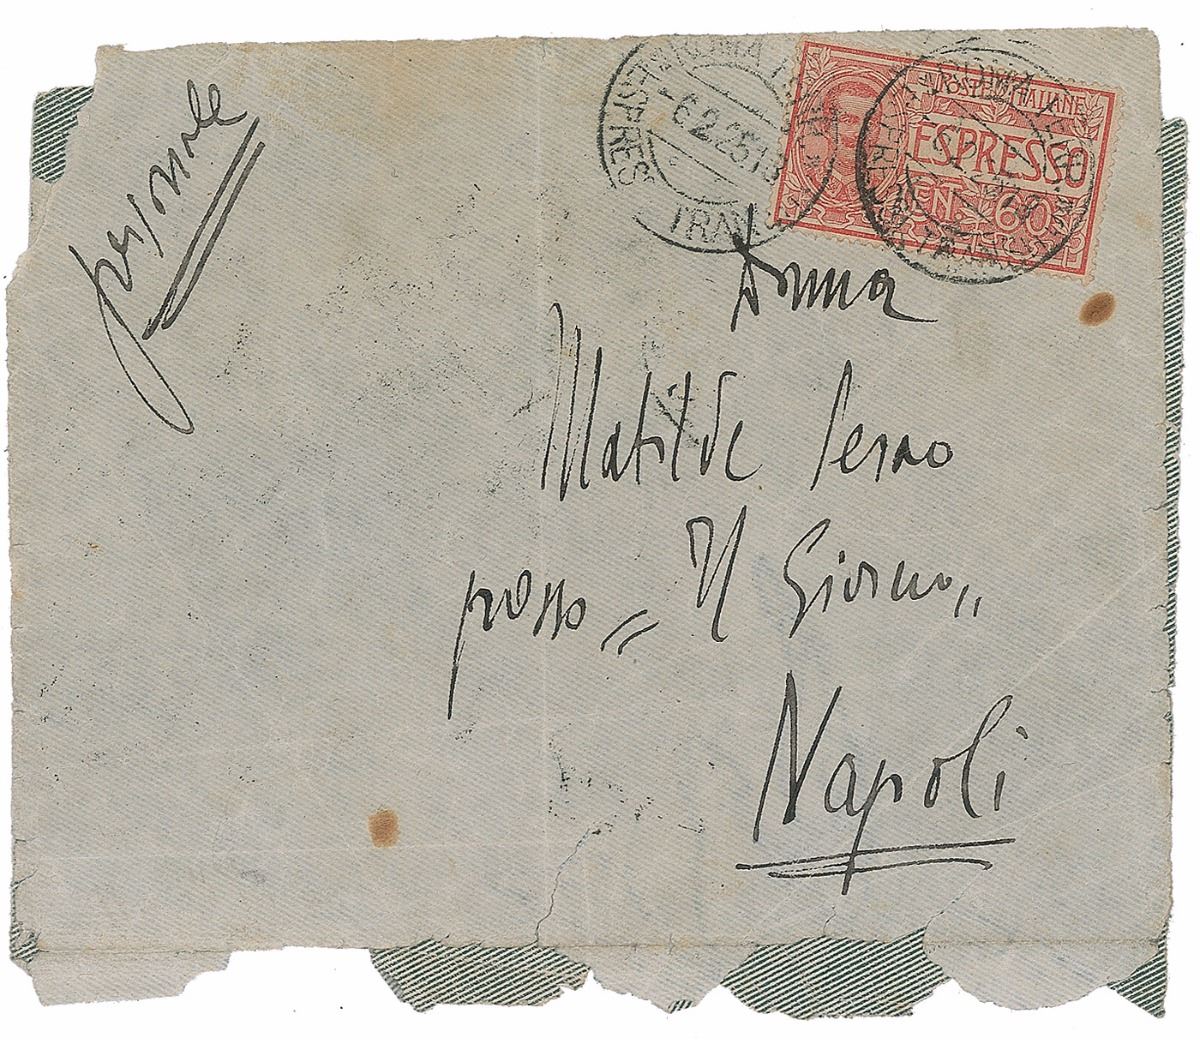 personale
ROMA
ESPRES
6.2.25.13
POSTE ITALIANE
ESPRESSO
CEN. 60
Donna
Matilde Serao
presso „ Il Giorno „
Napoli